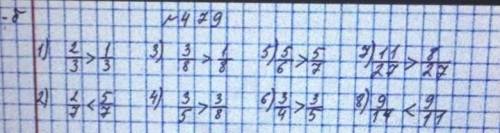 -б
№479
1) 2/3 > 1/3 3) 3/8 > 1/8 5) 5/6 > 5/7 7) 11/27 > 8/27
2) 2/7 < 5/7 4) 3/5 > 3/8 6) 3/4 > 3/5 8) 9/14 < 9/11